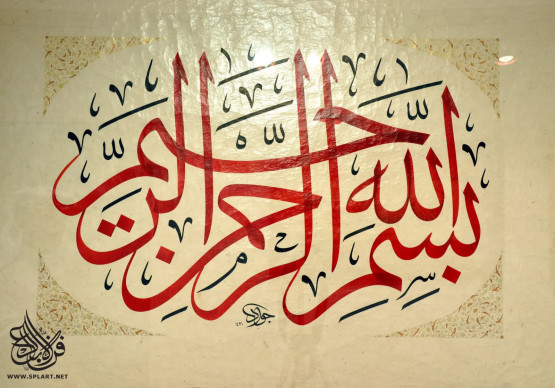 بِسْمِ اللَّهِ الرَّحْمَٰنِ الرَّحِيمِ
WWW.SPLART.NET